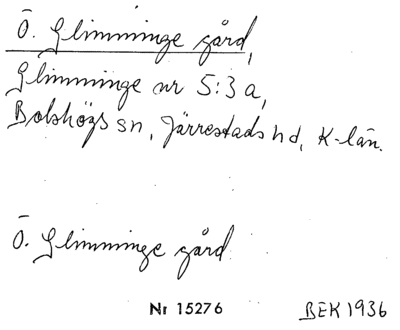 Ö. Glimminge gård,
Glimminge nr 5:3 a,
Bolshögs sn, Järrestads hd, K-län.
Ö. Glimminge gård
Nr 15276 BEK 1936